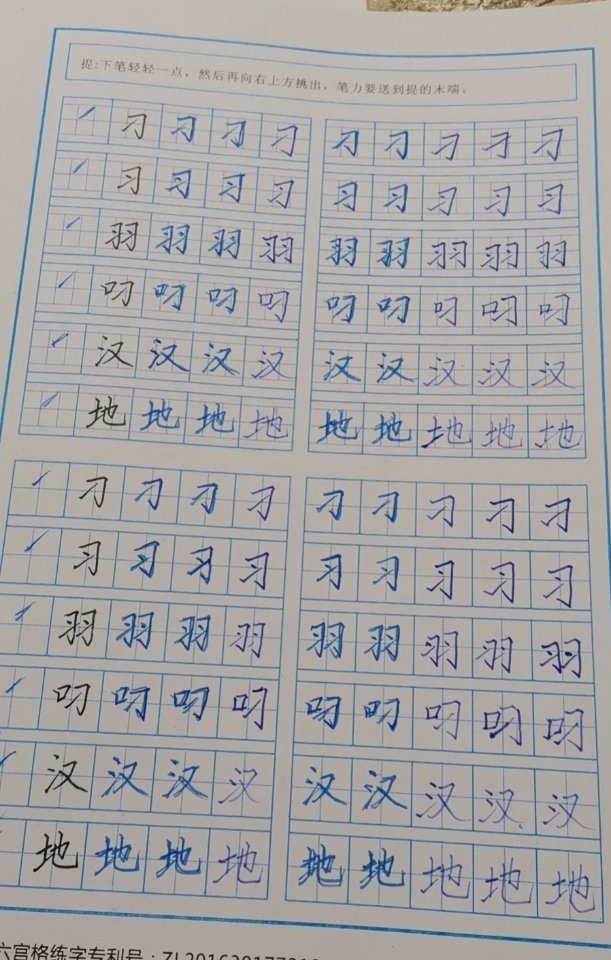 提:下笔轻轻一点，然后再向右上方挑出，笔力要送到提的末端。
刁刁刁刁 刁刁刁刁刁
习习习习 习习习习习
羽羽羽羽 羽羽羽羽羽
叼叼叼叼 叼叼叼叼叼
汉汉汉汉 汉汉汉汉汉
地地地地 地地地地地
刁刁刁刁 刁刁刁刁刁
习习习习 习习习习习
羽羽羽羽 羽羽羽羽羽
叼叼叼叼 叼叼叼叼叼
汉汉汉汉 汉汉汉汉汉
地地地地 地地地地地
六宫格练字专利号: